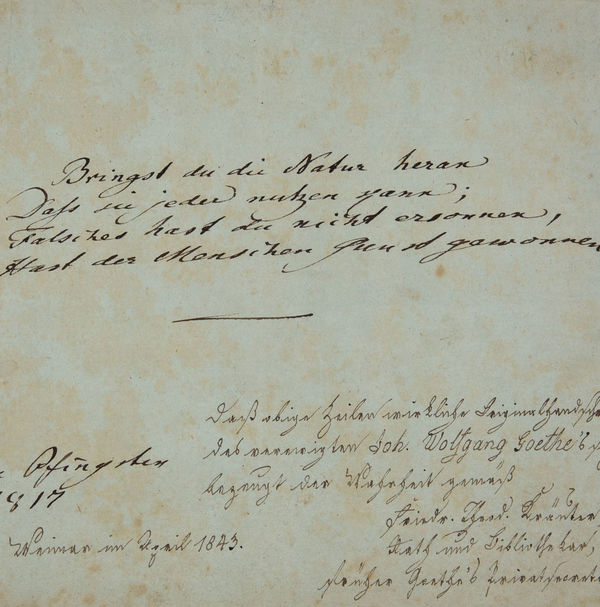 Bringst du die Natur heran
Dass sie jeder nutzen kann;
Falsches hast du nicht ersonnen,
Hast der Menschen Gunst gewonnen
Pfingsten
1817
Daß obige Zeilen wirkliche Originalhandschr
des verewigten Joh. Wolfgang Goethe's
bezeugt der Wahrheit gemäß
Friedr. Theod. Kräuter
Weimar im April 1843.
Rath und Bibliothekar,
früher Goethe's Privatsecretä